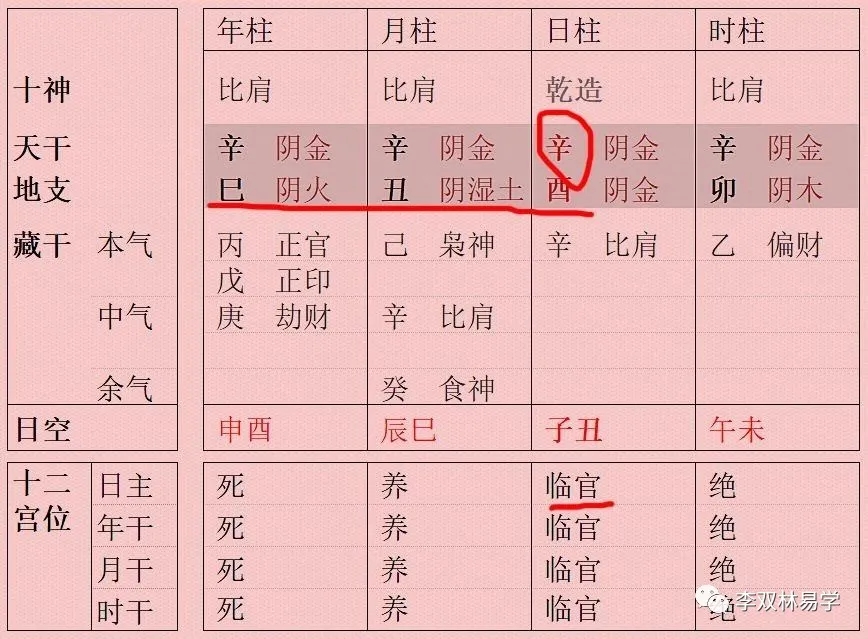 年柱 月柱 日柱 时柱
十神 比肩 比肩 乾造 比肩
天干 辛 阴金 辛 阴金 辛 阴金 辛 阴金
地支 巳 阴火 丑 阴湿土 酉 阴金 卯 阴木
藏干 本气 丙 正官 己 枭神 辛 比肩 乙 偏财
戊 正印
中气 庚 劫财 辛 比肩
余气 癸 食神
日空 申酉 辰巳 子丑 午未
十二宫位 日主 死 养 临官 绝
年干 死 养 临官 绝
月干 死 养 临官 绝
时干 死 养 临官 绝
李双林易学